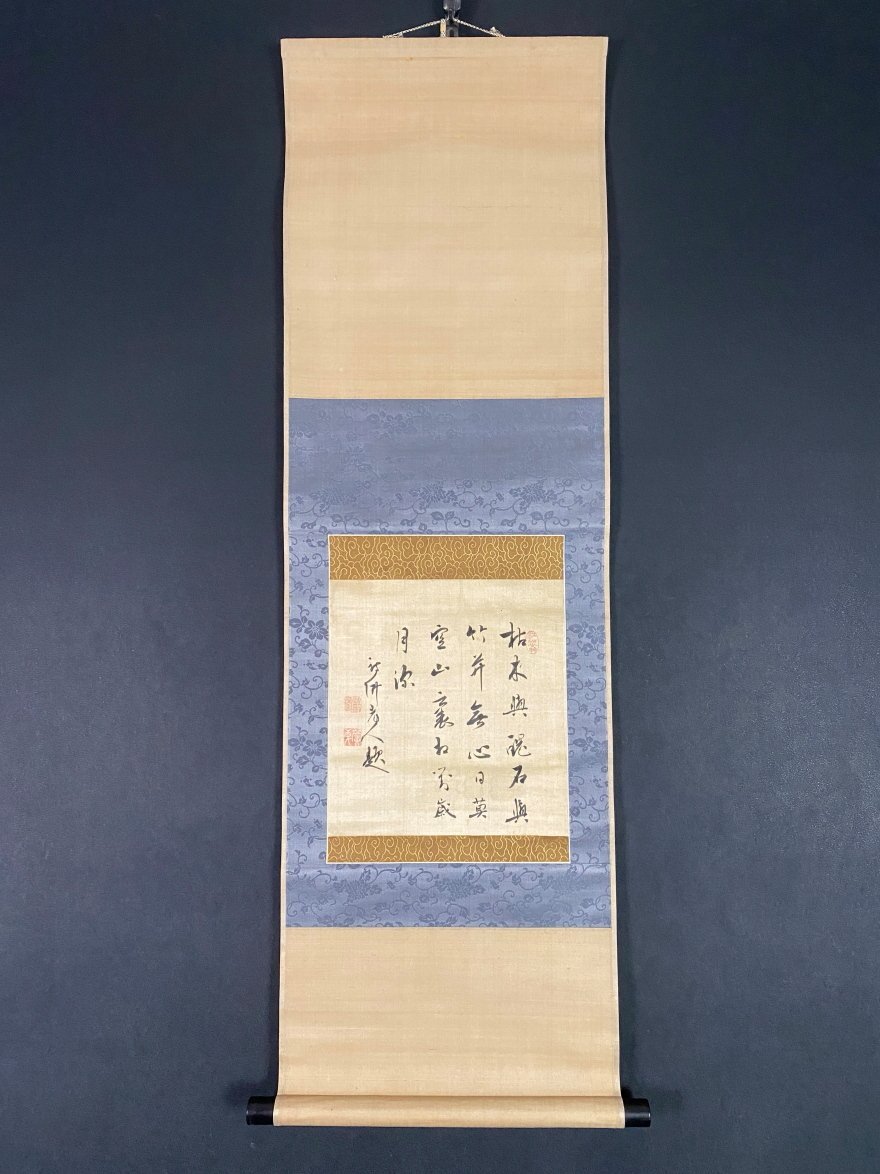 枯木與醜石與
竹并無心日莫
空山裏相對歲
月深
老人題